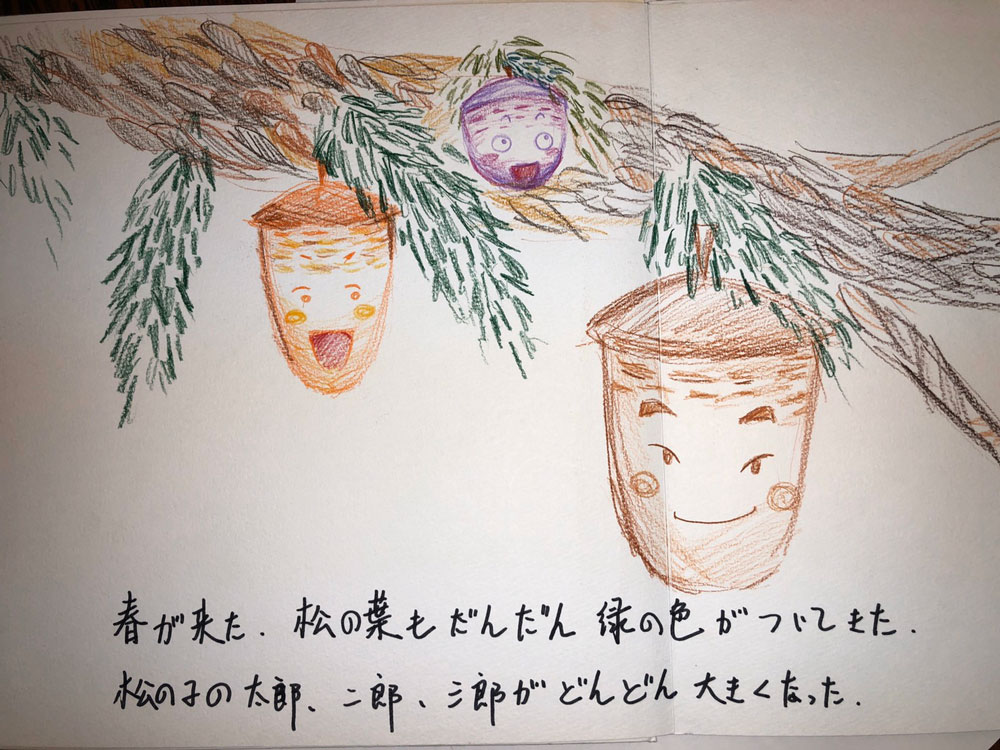 春が来た. 松の葉もだんだん緑の色がついてきた.
松の子の太郎、二郎、三郎がどんどん大きくなった.